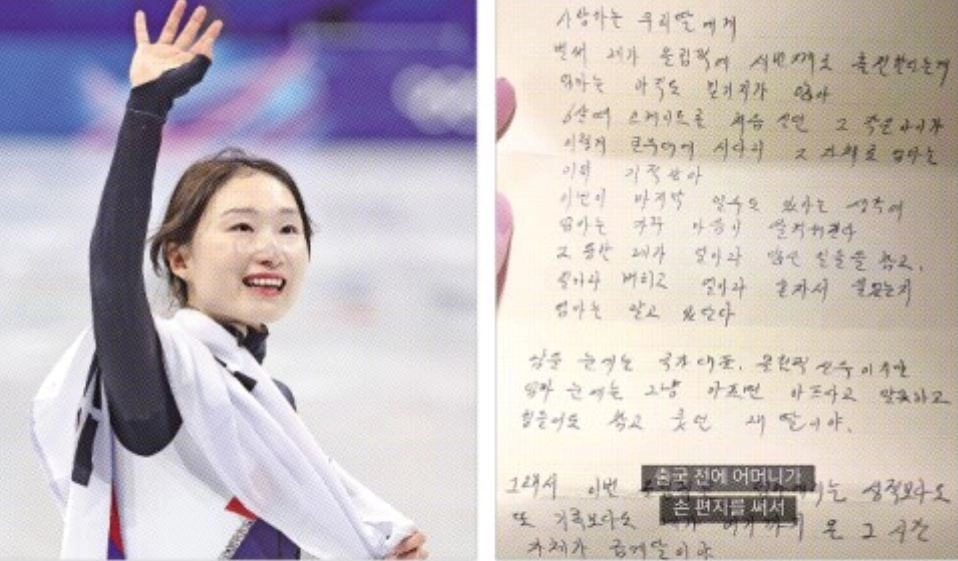 사랑하는 우리딸에게
벌써 네가 올림픽에 세번째로 출전한다는게
엄마는 아직도 믿기지가 않아
6살에 스케이트를 처음 신던 그 작은아이가
이렇게 큰무대에 서다니 그 자체로 엄마는
이미 기적같아
이번이 마지막 일수도 있다는 생각에
엄마는 자꾸 마음이 울컥해진다
그 동안 네가 얼마나 많은 눈물을 참고,
얼마나 버티고 얼마나 혼자서 울었는지
엄마는 알고 있단다
남들 눈에는 국가대표, 올림픽 선수이지만
엄마 눈에는 그냥 아프면 아프다고 말 못하고
힘들어도 참고 웃던 내 딸이야.
그래서 이번 성적보다도
또 기록보다도 여기까지 온 그 시간
자체가 금메달이야
출국 전에 어머니가
손 편지를 써서